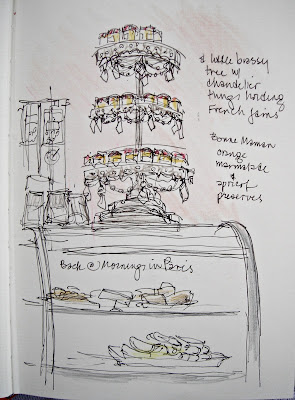 A little brassy
tree w/
chandelier
things holding
French jams
Bonne Maman
orange
marmalade
&
apricot
preserves
Back @ Mornings in Paris